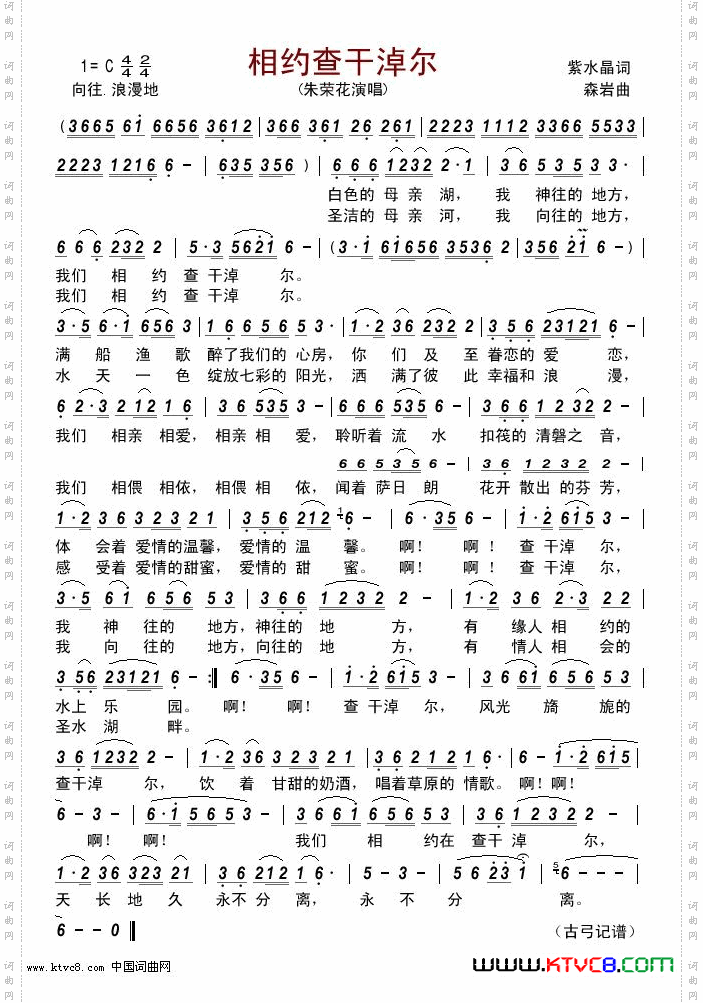 1=C 4/4 2/4
相约查干淖尔
紫水晶词
向往.浪漫地
(朱荣花演唱)
森岩曲
(3665 61 6656 3612 | 366 361 26 261 | 2223 1112 3366 5533 |
2223 1216 6 - | 635 356 ) | 666 1232 2·1 | 36 535 33· |
白色的 母 亲 湖, 我 神往的 地方,
圣洁的 母 亲 河, 我 向往的 地方,
6 6 6 232 2 | 5·3 5621 6 - | (3·1 61656 3536 2 | 356 21 6 -) |
我们 相 约 查 干淖 尔。
我们 相 约 查 干淖 尔。
3·5 6·1 656 3 | 16 65 65 53· | 1·2 36 232 2 | 3 5 6 23121 6 - |
满 船 渔 歌 醉了我们的 心房, 你 们 及 至 眷恋的 爱 恋,
水 天 一 色 绽放七彩的 阳光, 洒 满了彼 此 幸福和 浪 漫,
6 2·3 212 16 | 36 535 3 - | 666 535 6 - | 366 1 232 2 - |
我们 相亲 相爱, 相亲 相 爱, 聆听着 流 水 扣筏的 清磐之 音,
66 6535 6 - | 36 1 232 2 - |
我们 相偎 相依, 相偎 相 依, 闻着 萨日 朗 花开 散出 的芬 芳,
1·2 36 32 32 1 | 356 212 6· | 6·35 6 - | 1·2 615 3 |
体 会着 爱情的温馨, 爱情的 温 馨。 啊! 啊! 查 干淖 尔,
感 受着 爱情的甜蜜, 爱情的 甜 蜜。 啊! 啊! 查 干淖 尔,
3·5 61 656 53 | 366 1 232 2 - | 1·2 36 2·3 22 |
我 神 往的 地方,神往的 地 方, 有 缘人 相 约的
我 向 往的 地方,向往的 地 方, 有 情人 相 会的
3 56 23121 6 - :| 6·35 6 - | 1·2 615 3 | 65 65 53 |
水上 乐 园。 啊! 啊! 查 干淖 尔, 风光 旖 旎的
圣水 湖 畔。
36 1232 2 - | 1·2 36 32 32 21 | 36 21 12 16· | 6 - 1·2 615 |
查干淖 尔, 饮 着 甘甜的奶酒, 唱着草原的 情歌。 啊! 啊!
6 - 3 - | 6·1 565 3 - | 366 1 656 53 | 36 1 232 2 - |
啊! 啊! 我们 相 约在 查干 淖 尔,
1·2 36 323 21 | 36 212 16· | 5 - 3 - | 56 23 1 | 6 - - - |
天 长 地 久 永不 分 离, 永 不 分 离。
6 - - 0 ‖
(古弓记谱)
www.ktvc8.com 中国词曲网
WWW.KTVC8.COM
词曲网